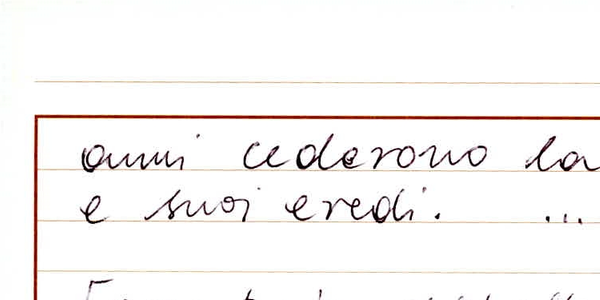 anni cederono la
e suoi eredi. ...